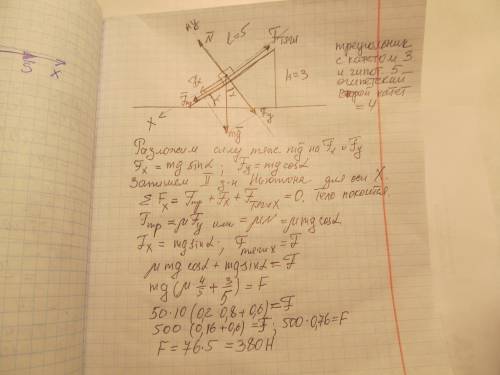 y
N
l=5
Fтяги
h=3
треугольник
с катетом 3
и гипот. 5 –
египетский
второй катет
= 4
X
mg
Разложим силу тяж mg на Fx и Fy
Fx = mg sinα ; Fy = mg cosα
Запишем II з-н Ньютона для оси X
Σ Fx = Fтр + Fx + Fтяги x = 0. Тело покоится.
Fтр = μFy или = μN = μmg cosα
Fx = mg sinα ; Fтяги x = F
μmg cosα + mg sinα = F
mg (μ · 4/5 + 3/5) = F
50·10 (0,2·0,8+0,6) = F
500 (0,16+0,6) = F ; 500·0,76 = F
F = 76·5 = 380Н